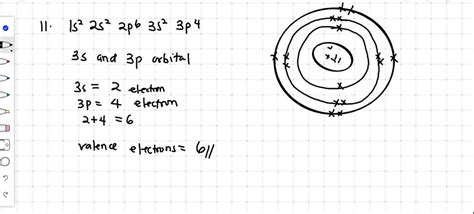 11. 1s² 2s² 2p6 3s² 3p4
3s and 3p orbital
3s = 2 electron
3p = 4 electron
2+4 = 6
valence electrons = 6//